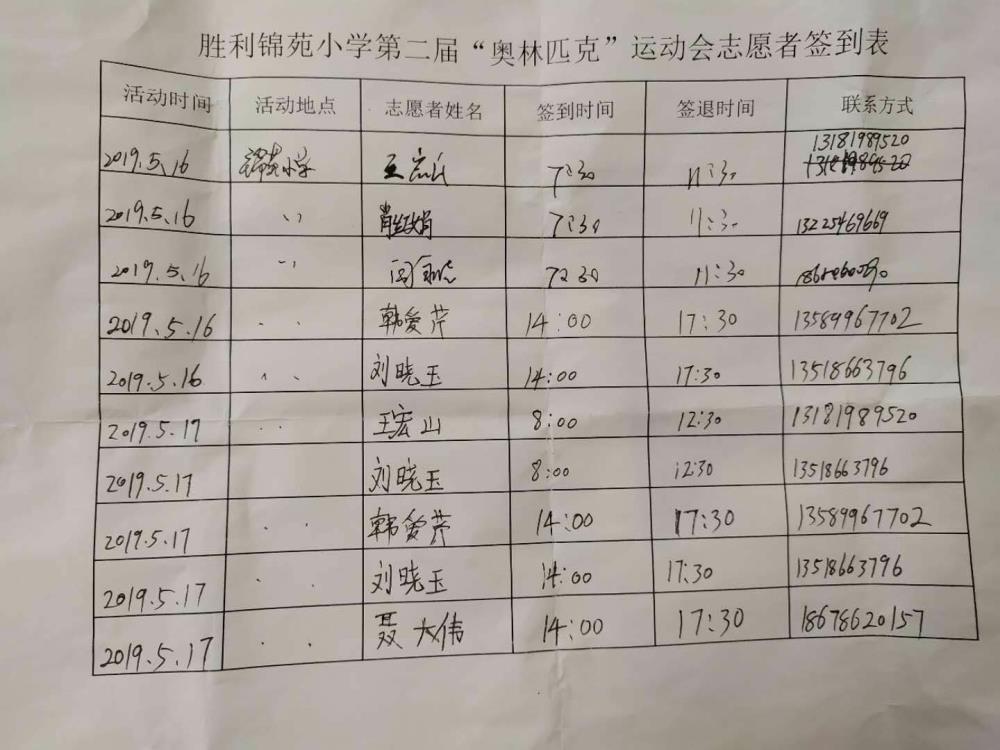 胜利锦苑小学第二届“奥林匹克”运动会志愿者签到表
活动时间 活动地点 志愿者姓名 签到时间 签退时间 联系方式
13181989520
2019.5.16 锦苑小学 王宏山 7:30 11:30
2019.5.16 〃 肖 7:30 11:30 13225469669
2019.5.16 〃 闫 7:30 11:30
2019.5.16 〃 韩爱芹 14:00 17:30 13589967702
2019.5.16 〃 刘晓玉 14:00 17:30 13518663796
2019.5.17 〃 王宏山 8:00 12:30 13181989520
2019.5.17 刘晓玉 8:00 12:30 13518663796
2019.5.17 〃 韩爱芹 14:00 17:30 13589967702
2019.5.17 〃 刘晓玉 14:00 17:30 13518663796
2019.5.17 〃 聂大伟 14:00 17:30 18678620157